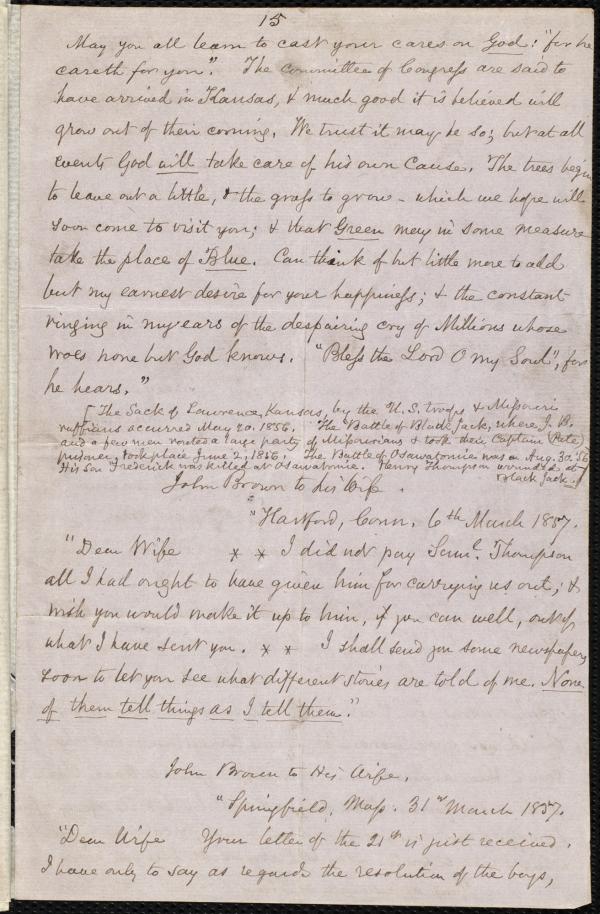 15
May you all learn to cast your cares on God: "for he
careth for you". The committee of Congress are said to
have arrived in Kansas, & much good it is believed will
grow out of their coming. We trust it may be so; but at all
events God will take care of his own Cause. The trees begin
to leave out a little, & the grass to grow - which we hope will
soon come to visit you; & that Green may in some measure
take the place of Blue. Can think of but little more to add
but my earnest desire for your happiness; & the constant
ringing in my ears of the despairing cry of Millions whose
woes none but God knows. "Bless the Lord O my Soul", for
he hears."
[The Sack of Lawrence, Kansas, by the U.S. troops & Missouri
ruffians occurred May 20. 1856. The Battle of Black Jack, where J. B.
and a few men routed a large party of Missourians & took their Captain (Pate)
prisoner, took place June 2, 1856. The Battle of Osawatomie was on Aug. 30. '56
His son Frederick was killed at Osawatomie. Henry Thompson wounded at
Black Jack.]
John Brown to his Wife.
"Hartford, Conn. 6th March 1857.
"Dear Wife * * I did not pay Saml. Thompson
all I had ought to have given him for carrying us out; &
wish you would make it up to him, if you can well, out of
what I have sent you. * * I shall send you some newspapers
soon to let you see what different stories are told of me. None
of them tell things as I tell them."
John Brown to His Wife.
"Springfield, Mass. 31st March 1857.
"Dear Wife Your letter of the 21st is just received.
I have only to say as regards the resolution of the boys,